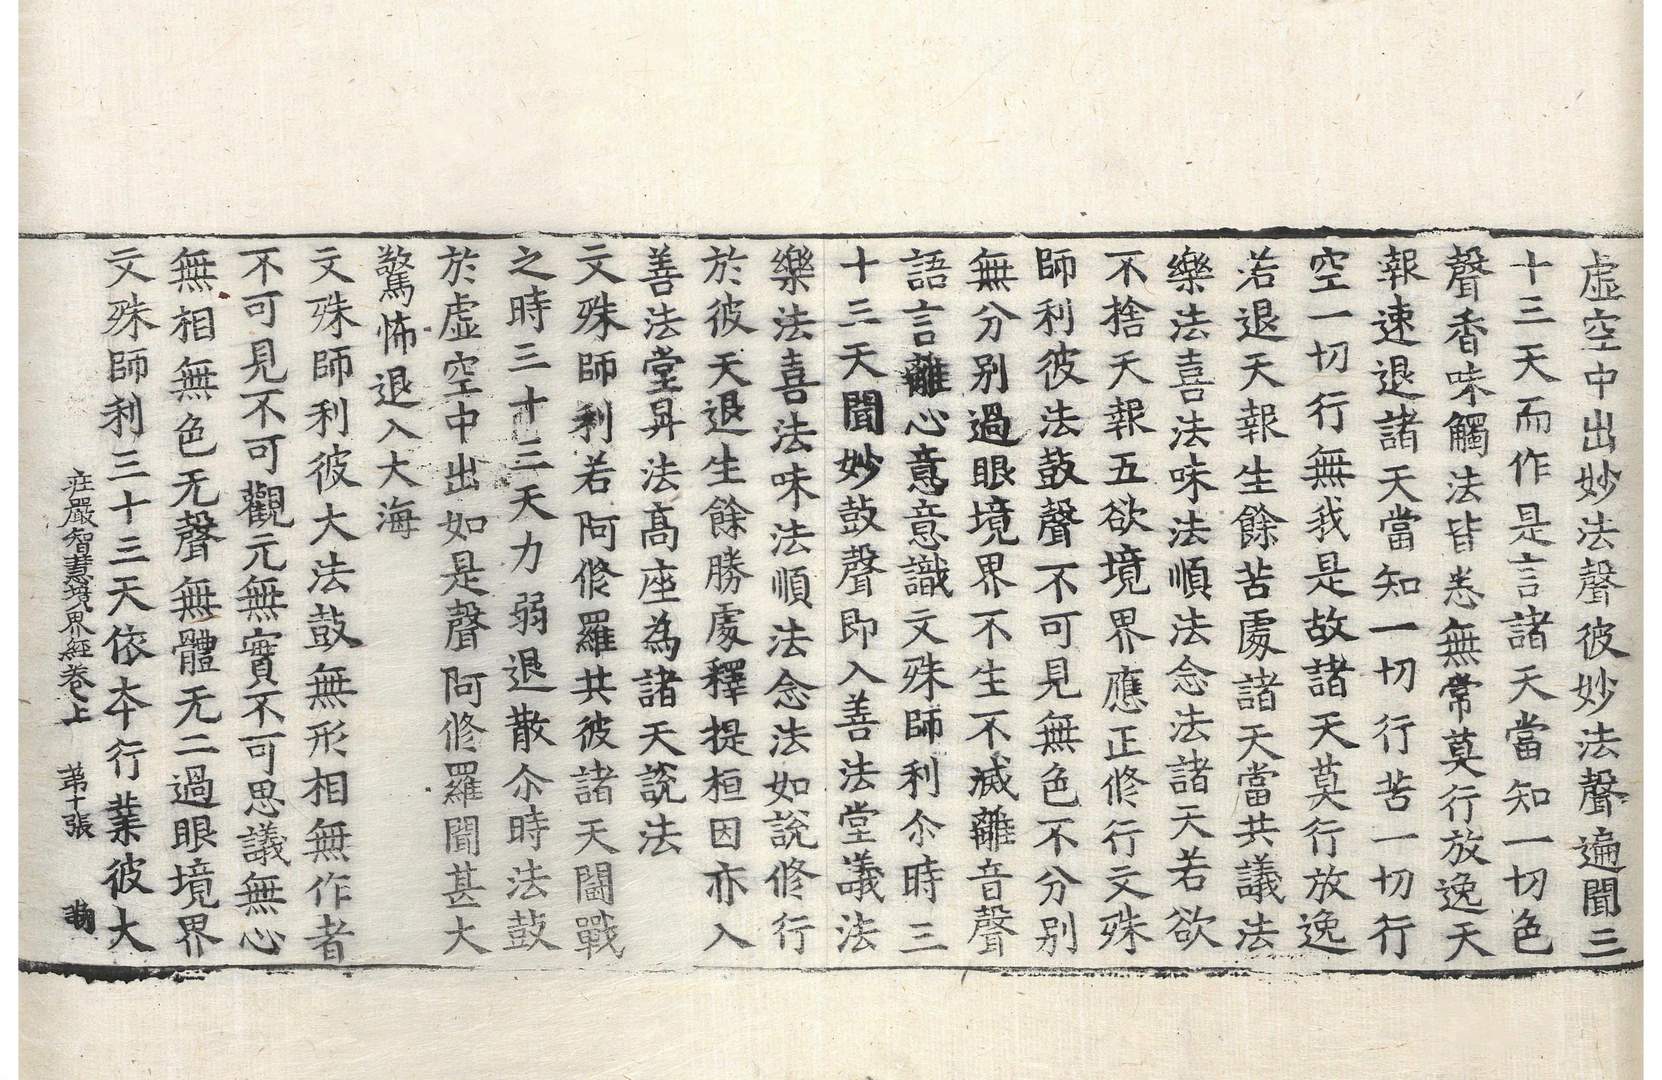 虛空中出妙法聲彼妙法聲遍聞三
十三天而作是言諸天當知一切色
聲香味觸法皆悉無常莫行放逸天
報速退諸天當知一切行苦一切行
空一切行無我是故諸天莫行放逸
若退天報生餘苦處諸天當共議法
樂法喜法味法順法念法諸天若欲
不捨天報五欲境界應正修行文殊
師利彼法鼓聲不可見無色不分別
無分別過眼境界不生不滅離音聲
語言離心意意識文殊師利尒時三
十三天聞妙鼓聲即入善法堂議法
樂法喜法味法順法念法如說修行
於彼天退生餘勝處釋提桓因亦入
善法堂昇法高座為諸天說法
文殊師利若阿修羅共彼諸天鬪戰
之時三十三天力弱退散尒時法鼓
於虛空中出如是聲阿修羅聞甚大
驚怖退入大海
文殊師利彼大法鼓無形相無作者
不可見不可觀元無實不可思議無心
無相無色无聲無體无二過眼境界
文殊師利三十三天依夲行業彼大
莊嚴智慧境界經卷上 苐十張